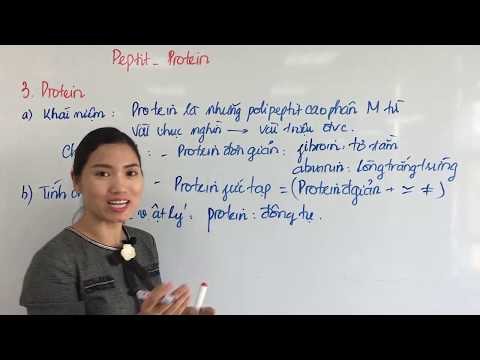 Peptit - Protein
3. Protein
a) Khái niệm : Protein là những polipeptit cao phân M từ
vài chục nghìn → vài triệu đvc.
Ch : - Protein đơn giản : fibroin : tơ tằm
abumin : lòng trắng trứng
- Protein phức tạp = (Protein đ giản + ≃ ≠)
b) Tính ch
vật lý : protein : đông tụ.